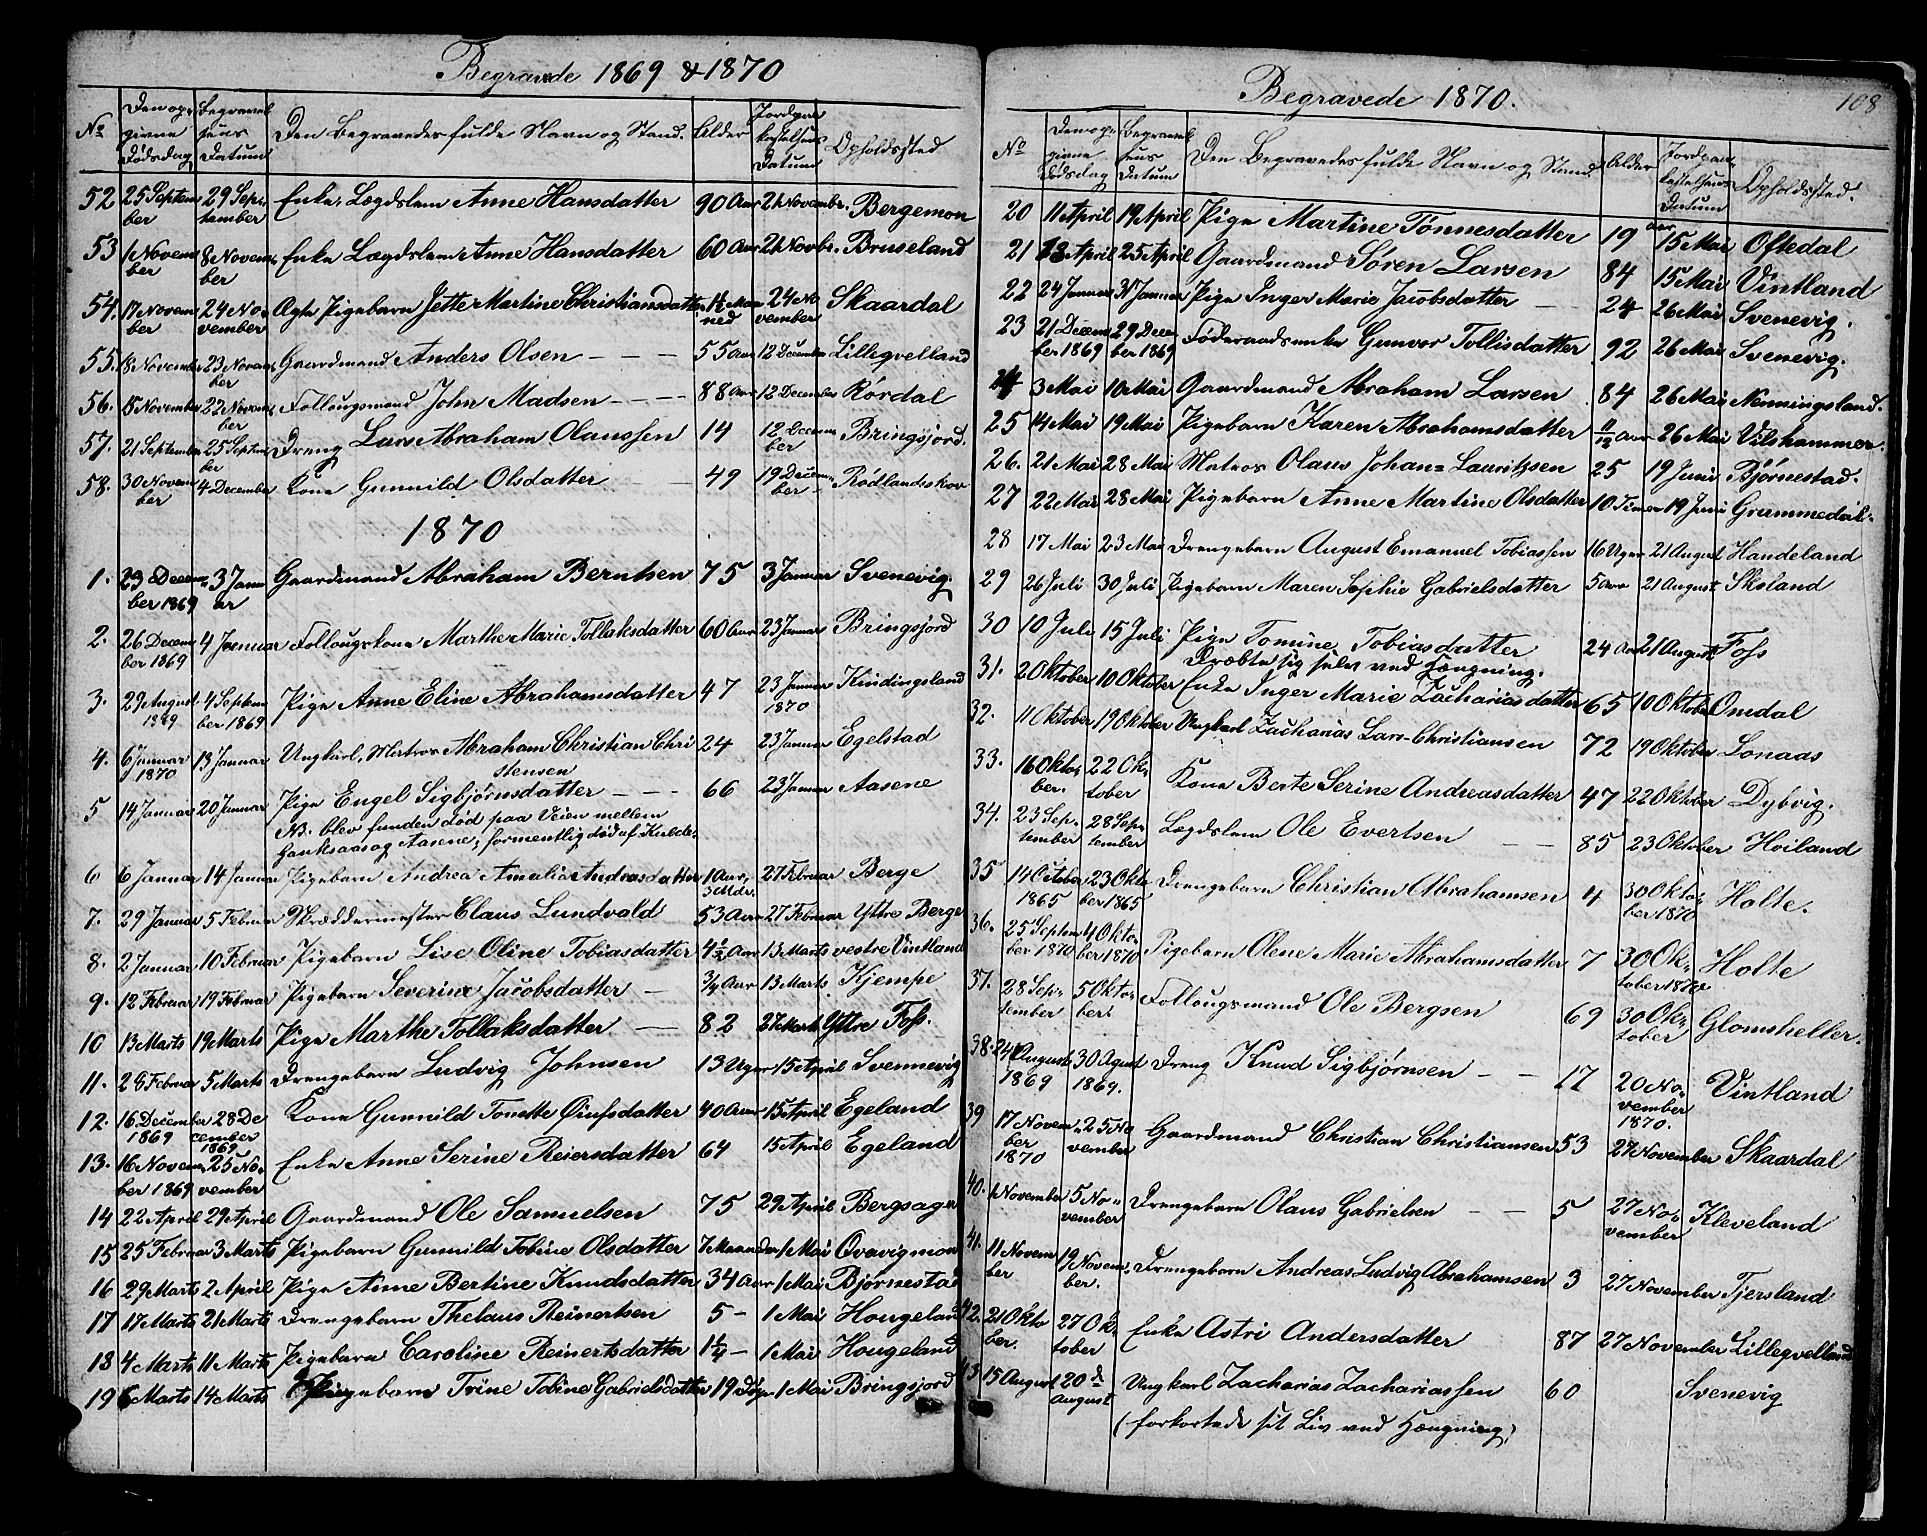 Begravede 1869 & 1870
No Den opgivne Dødsdag Begravelsens Datum Den Begravedes fulde Navn og Stand. Alder Jordpaakastelsens Datum Opholdssted
52 25 September 29 September Enke, Lægdslem Anne Hansdatter 90 Aar 21 Novembr. Bergemon
53 1 November 8 November Enke Lægdslem Anne Hansdatter 60 Aar 21 Novbr. Bruseland
54. 17 November 24 November Ægte Pigebarn Jette Martine Christiansdatter 1½ Maaned 24 November Skaardal
55. 18 November 23 November Gaardmand Anders Olsen - - - 55 Aar 12 December Lillegvelland
56. 15 November 22 November Follougsmand John Madsen - - - 88 Aar 12 December Rørdal
57. 21 September 25 September Dreng Lars Abraham Olaussen 14 12 December Bringsjord.
58. 30 November 4 December Kone Gunnild Olsdatter 49 19 December Rødlandskov
1870
1. 23 December 1869 3 Januar Gaardmand Abraham Berntsen 75 3 Januar Svenevig.
2. 26 December 1869 4 Januar Follougskone Marthe Marie Tollaksdatter 60 Aar 23 Januar Bringsjord
3. 29 August 1869 4 September 1869 Pige Anne Eline Abrahamsdatter 47 23 Januar 1870 Kindingsland
4. 6 Januar 1870 13 Januar Ungkarl, Matros Abraham Christian Christensen 24 23 Januar Egelstad
5 14 Januar 20 Januar Pige Engel Sigbjørnsdatter - - - 66 23 Januar Aasene
NB. blev funden død paa Veien mellem
Hanksaas og Aasene, formentlig død af Kulde.
6 6 Januar 14 Januar Pigebarn Andrea Amalia Andreasdatter 1 Aar, 3 Mdr. 27 Februar Berge
7. 29 Januar 5 Februar Skræddermester Claus Lundvald 53 Aar 27 Februar Yttre Berge
8. 2 Januar 10 Februar Pigebarn Lise Oline Tobiasdatter 4½ Aar 13 Marts vestre Vintland
9. 12 Februar 19 Februar Pigebarn Severine Jacobsdatter - ¾ Aar 13 Marts Kjempe
10 13 Marts 19 Marts Pige Marthe Tollaksdatter - 82 27 Marts Yttre Foss.
11. 28 Februar 5 Marts Drengebarn Ludvig Johnsen 13 Uger 15 April Svennevig
12. 16 December 1869 28 December 1869 Kone Gunnild Tonette Øiufsdatter 40 Aar 15 April Egeland
13. 16 November 1869 25 November Enke Anne Serine Reiersdatter 64 15 April Egeland
14 22 April 29 April Gaardmand Ole Samuelsen 75 29 April Bergsager
15 25 Februar 3 Marts Pigebarn Gunnild Tobine Olsdatter 7 Maaneder 1 Mai Qvavigmon
16 29 Marts 2 April Pige Anne Bertine Knudsdatter 34 Aar 1 Mai Bjørnestad
17 17 Marts 21 Marts Drengebarn Thelaus Reinertsen 5 - 1 Mai Hougeland
18 4 Marts 11 Marts Pigebarn Caroline Reinertsdatter 1¼ - 1 Mai Hougeland
19 6 Marts 14 Marts Pigebarn Trine Tobine Gabrielsdatter 19 Dage 1 Mai Bringsjord
Begravede 1870.
108
No Den opgivne Dødsdag Begravelsens Datum Den Begravedes fulde Navn og Stand. Alder Jordpaakastelsens Datum Opholdssted.
20 11 April 19 April Pige Martine Tønnesdatter 19 Aar 15 Mai Oftedal
21 13 April 25 April Gaardmand Søren Larsen 84 15 Mai Vintland
22 24 Januar 31 Januar Pige Inger Marie Jacobsdatter - 24 26 Mai Svenevig.
23 21 December 1869 29 December 1869 Føderaadsenke Gunvor Tollisdatter 92 26 Mai Svenevig.
24 3 Mai 10 Mai Gaardmand Abraham Larsen 84 26 Mai Nenningsland.
25 14 Mai 19 Mai Pigebarn Karen Abrahamsdatter 11/12 Aar 26 Mai Vilshammer.
26. 21 Mai 28 Mai Matros Olaus Johan= Lauritzsen 25 19 Juni Bjørnestad.
27 22 Mai 28 Mai Pigebarn Anne Martine Olsdatter 10 Timer 19 Juni Grummedal.
28 17 Mai 23 Mai Drengebarn August Emanuel Tobiassen 16 Uger 21 August Handeland
29 26 Juli 30 Juli Pigebarn Maren Sophie Gabrielsdatter 5 Aar 21 August Skoland
30 10 Juli 15 Juli Pige Tomine Tobiasdatter 24 Aar 21 August Foss
Dræbte sig selv ved Hængning.
31. 2 Oktober 10 Oktober Enke Inger Marie Zachariasdatter 65 10 Oktober Omdal
32. 11 Oktober 19 Oktober Ungkarl Zacharias Lars-Christiansen 72 19 Oktober Lonaas
33. 16 Oktober. 22 Oktober Kone Berte Serine Andreasdatter 47 22 Oktober Dybvig.
34. 23 September 28 September Lægdslem Ole Evertsen - - 85 23 Oktober Hoiland
35 14 October 1865 23 Oktober 1865 Drengebarn Christian Abrahamsen 4 30 Oktober 1870 Holte.
36. 25 September 1870 4 Oktober 1870 Pigebarn Olene Marie Abrahamsdatter 7 30 Oktober 1870 Holte
37. 28 September 5 Oktober Follougsmand Ole Bergsen 69 30 Oktober Glomsheller.
38. 24 August 1869 30 Agust 1869. Dreng Knud Sigbjørnsen - - 17 20 November 1870. Vintland
39 17 November 1870 25 November Gaardmand Christian Christiansen 53 27 November Skaardal
40. 1 November 5 November Drengebarn Olaus Gabrielsen - - 5 27 November Kleveland
41. 11 November 19 November. Drengebarn Andreas Ludvig Abrahamsen 3 27 November Tjersland
42. 21 Oktober. 27 Oktober Enke Astri Andersdatter 87 27 November Lillegvelland
43 15 August 20d August Ungkarl Zacharias Zachariassen 60 Svenevig
(forkortede sit Liv ved Hængning)